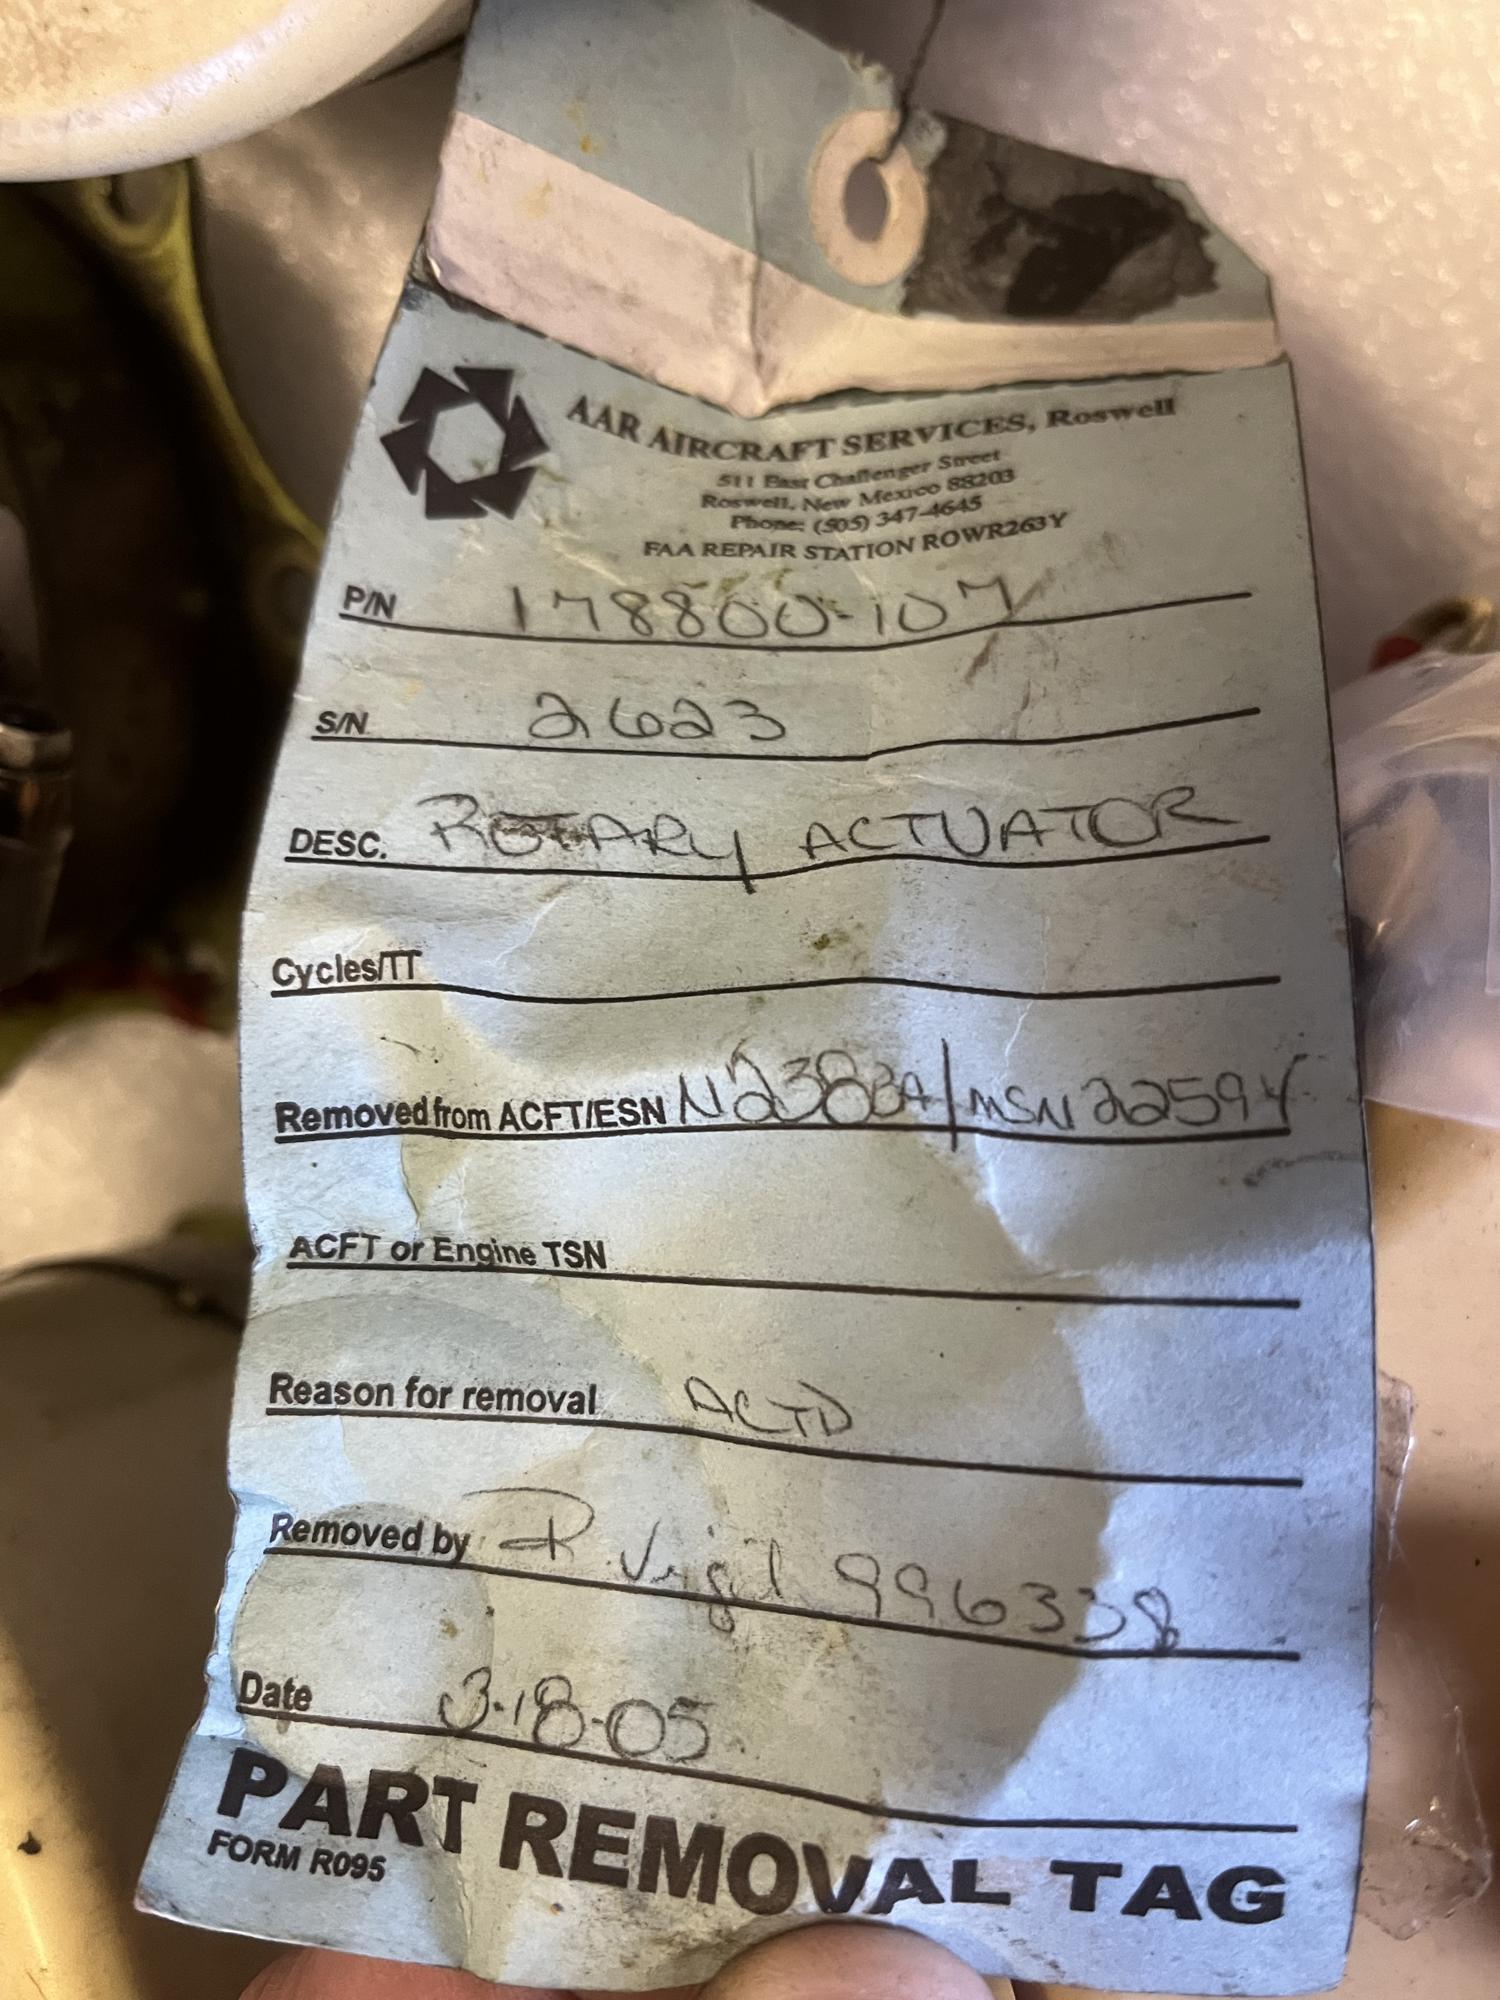 AAR AIRCRAFT SERVICES, Roswell
511 East Challenger Street
Roswell, New Mexico 88203
Phone: (505) 347-4645
FAA REPAIR STATION ROWR263Y
P/N 178800-107
S/N 2623
DESC. ROTARY ACTUATOR
Cycles/TT
Removed from ACFT/ESN N2383A/MSN 22594
ACFT or Engine TSN
Reason for removal ACTD
Removed by R. Vigil 996338
Date 3-18-05
PART REMOVAL TAG
FORM R095